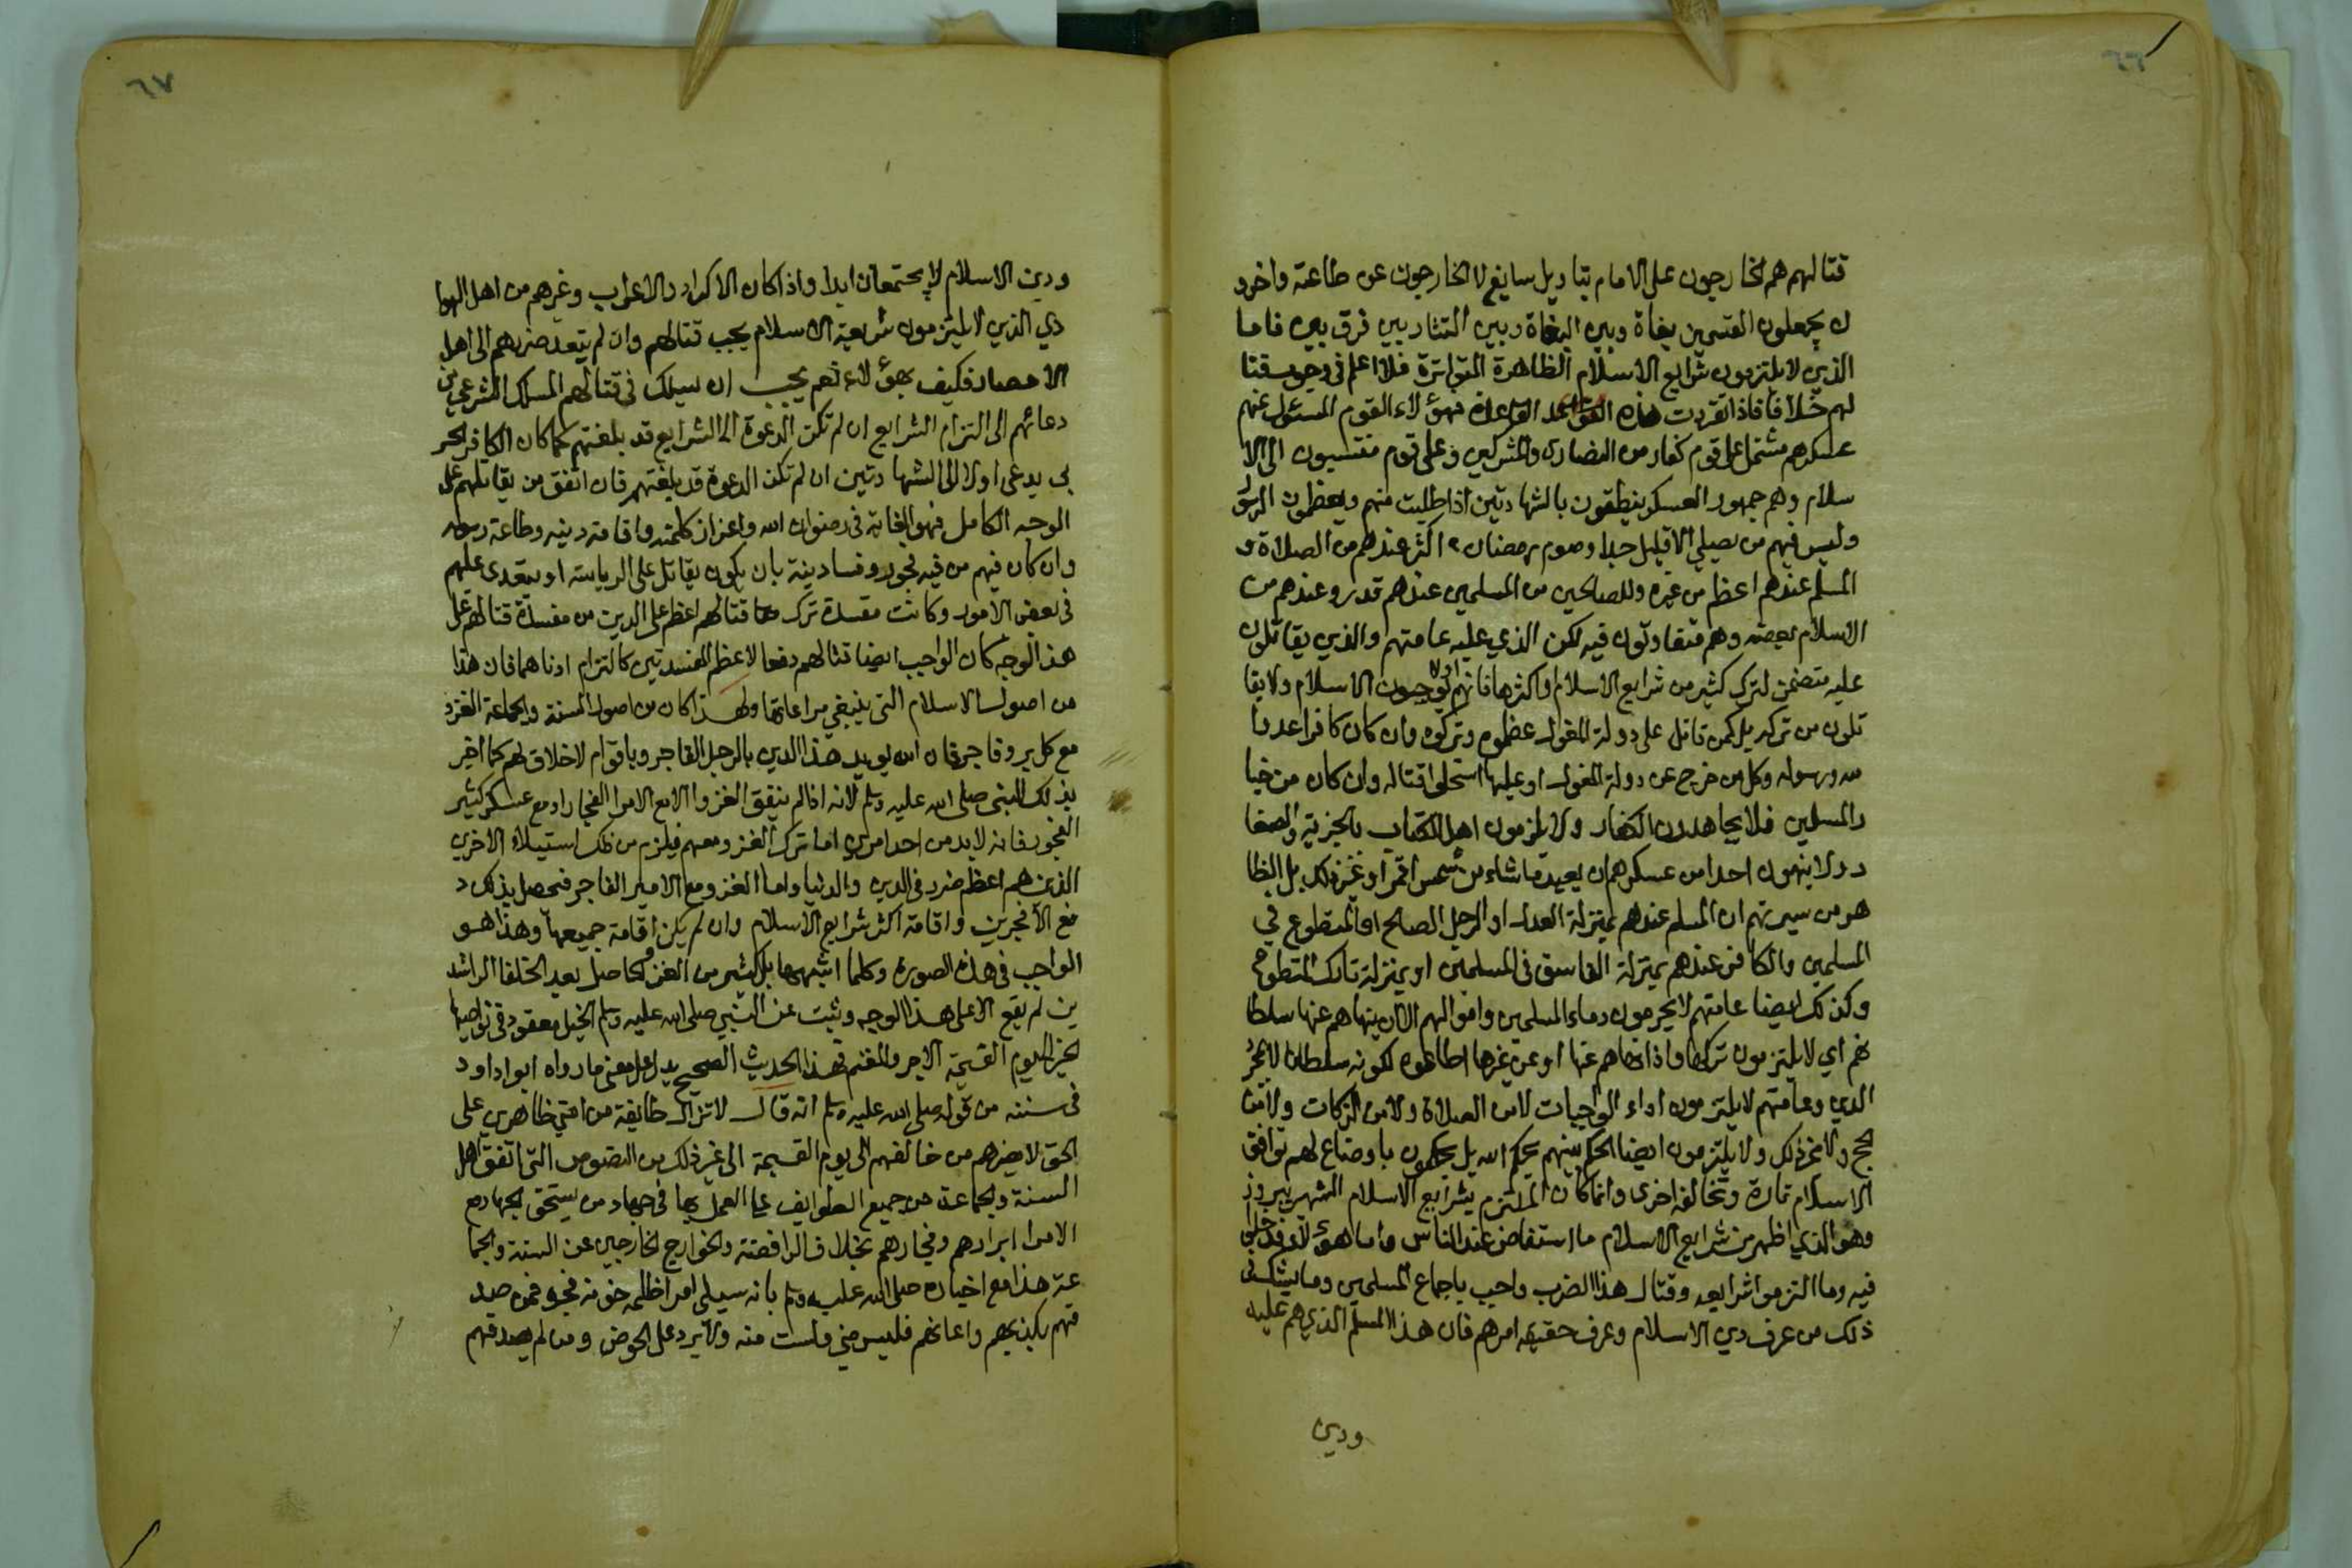 ٦٦
قتالهم هم الخارجون على الامام بتاويل سايغ لا الخارجون عن طاعته واخرو
ن يجعلون القسمين بغاة وبين البغاة وبين التتار بين فرق بين فاما
الذين لا يلتزمون شرايع الاسلام الظاهرة المتواترة فلا اعلم في وجوب قتا
لهم خلافا فاذا تقررت هذه القاعدة فهؤلاء القوم المسئول عنهم
عسكرهم مشتمل على قوم كفار من النصارى والمشركين وعلى قوم منتسبون الى الا
سلام وهم جمهور العسكر ينطقون بالشهادتين اذا طلبت منهم ويعظمون الرسول
وليس فيهم من يصلي الا قليل جدا وصوم رمضان اكثر عندهم من الصلاة و
المسلم عندهم اعظم من غيره وللصالحين من المسلمين عندهم قدر وعندهم من
الاسلام بعضه وهم متفاوتون فيه لكن الذي عليه عامتهم والذي يقاتلون
عليه متضمن لترك كثير من شرايع الاسلام او اكثرها فانهم اولا يوجبون الاسلام ولا يقا
تلون من تركه بل كمن قاتل على دولة المغول عظموه وتركوه وان كان كافرا عدوا
لله ورسوله وكل من خرج عن دولة المغول او عليها استحلوا قتاله وان كان من خيا
ر المسلمين فلا يجاهدون الكفار ولا يلزمون اهل الكتاب بالجزية والصغا
ر ولا ينهون احدا من عسكرهم ان يعبد ما شاء من شمس او قمر او غير ذلك بل الظا
هر من سيرتهم ان المسلم عندهم بمنزلة العدل او الرجل الصالح او المتطوع في
المسلمين والكافر عندهم بمنزلة الفاسق في المسلمين او بمنزلة تارك التطوع
وكذلك ايضا عامتهم لا يحرمون دماء المسلمين واموالهم الا ان ينهاهم عنها سلطا
نهم اي لا يلتزمون تركها واذا نهاهم عنها او عن غيرها اطاعوه لكونه سلطانا لا بمجرد
الدين وعامتهم لا يلتزمون اداء الواجبات لا من الصلاة ولا من الزكات ولا من
الحج ولا غير ذلك ولا يلتزمون ايضا الحكم بينهم بحكم الله بل يحكمون باوضاع لهم توافق
الاسلام تارة وتخالفه اخرى وانما كان الملتزم بشرايع الاسلام الشهر بيرون
وهو الذي اظهر من شرايع الاسلام ما استفاض عند الناس واما هؤلاء فدخلوا
فيه وما التزموا شرايعه وقتال هذا الضرب واجب باجماع المسلمين وما يشك في
ذلك من عرف دين الاسلام وعرف حقيقة امرهم فان هذا السلم الذي هم عليه
ودين
٦٧
ودين الاسلام لا يجتمعان ابدا واذا كان الاكراد والاعراب وغيرهم من اهل البوا
دي الذين لا يلتزمون شريعة الاسلام يجب قتالهم وان لم يتعد ضررهم الى اهل
الامصار فكيف بهؤلاء نعم يجب ان يسلك في قتالهم المسلك الشرعي من
دعائهم الى التزام الشرايع ان لم تكن الدعوة الى الشرايع قد بلغتهم كما كان الكافر الحر
بي يدعى اولا الى الشهادتين ان لم تكن الدعوة قد بلغتهم فان اتفق من يقاتلهم على
الوجه الكامل فهو الغاية في رضوان الله واعزاز كلمته واقامة دينه وطاعة رسوله
وان كان فيهم من فيه فجور وفساد نية بان يكون يقاتل على الرياسة او يتعدى عليهم
في بعض الامور وكانت مفسدة ترك قتالهم اعظم على الدين من مفسدة قتالهم على
هذا الوجه كان الواجب ايضا قتالهم دفعا لاعظم المفسدتين كالتزام ادناهما فان هذا
من اصول الاسلام التي ينبغي مراعاتها ولهذا كان من اصول السنة والجماعة الغزو
مع كل بر وفاجر فان الله يويد هذا الدين بالرجل الفاجر وباقوام لا خلاق لهم كما اخبر
بذلك النبي صلى الله عليه وسلم لانه اذا لم يتفق الغزو الا مع الامرا الفجار او مع عسكر كثير
الفجور فانه لا بد من احد امرين اما ترك الغزو معهم فيلزم من ذلك استيلاء الاخرين
الذين هم اعظم ضرر في الدين والدنيا واما الغزو مع الامير الفاجر فيحصل بذلك د
فع الافجرين واقامة اكثر شرايع الاسلام وان لم يكن اقامة جميعها وهذا هو
الواجب في هذه الصورة وكلما اشبهها بل كثير من الغزو الحاصل بعد الخلفا الراشد
ين لم يقع الا على هذا الوجه وثبت عن النبي صلى الله عليه وسلم الخيل معقود في نواصيها
الخير الى يوم القيمة الاجر والمغنم فهذا الحديث الصحيح يدل على معنى ما رواه ابو داود
في سننه من قوله صلى الله عليه وسلم انه قال لا تزال طايفة من امتي ظاهرين على
الحق لا يضرهم من خالفهم الى يوم القيمة الى غير ذلك من النصوص التي اتفق اهل
السنة والجماعة من جميع الطوايف على العمل بها في جهاد من يستحق الجهاد مع
الامرا ابرارهم وفجارهم بخلاف الرافضة والخوارج الخارجين عن السنة والجما
عة هذا مع اخباره صلى الله عليه وسلم بانه سيلي امرا ظلمة خونة فجرة فمن صد
قهم بكذبهم واعانهم فليس مني ولست منه ولا يرد على الحوض ومن لم يصدقهم